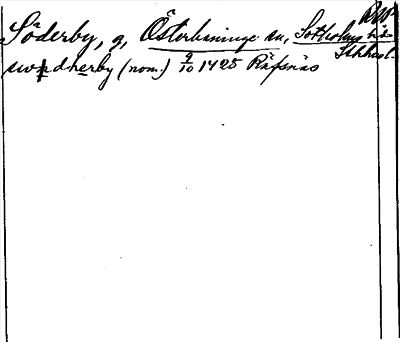 Söderby, g, Österhaninge sn, Sotholms hd.
Sthlms l.
swpdherby (nom.) 9/10 1425 Räfsnäs